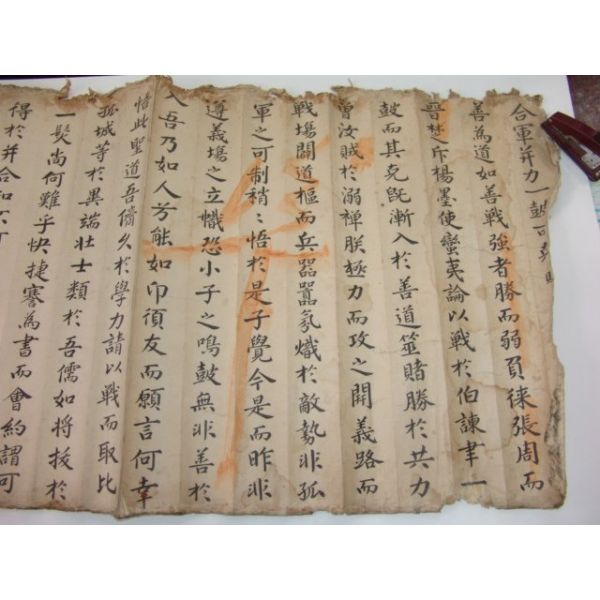 合軍並力一鼓可
善為道如善戰強者勝而弱負徠張周而
晉楚斥楊墨使蠻夷論以戰於伯諫聿一
鼓而其克旣漸入於善道筮賭勝於共力
曾汝賊於溺禪朕極力而攻之開義路而
戰場闢道樞而兵器囂氛熾於敵勢非孤
軍之可制稍〻悟於是子覺今是而昨非
遵義塲之立幟恐小子之鳴鼓無非善於
入吾乃如人芳能如卬須友而願言何幸
悟此聖道吾儕久於學力請以戰而取比
孤城等於異端壮士類於吾儒如將拔於
一髮尚何難乎快捷謇為書而會約謂可
得於并合和